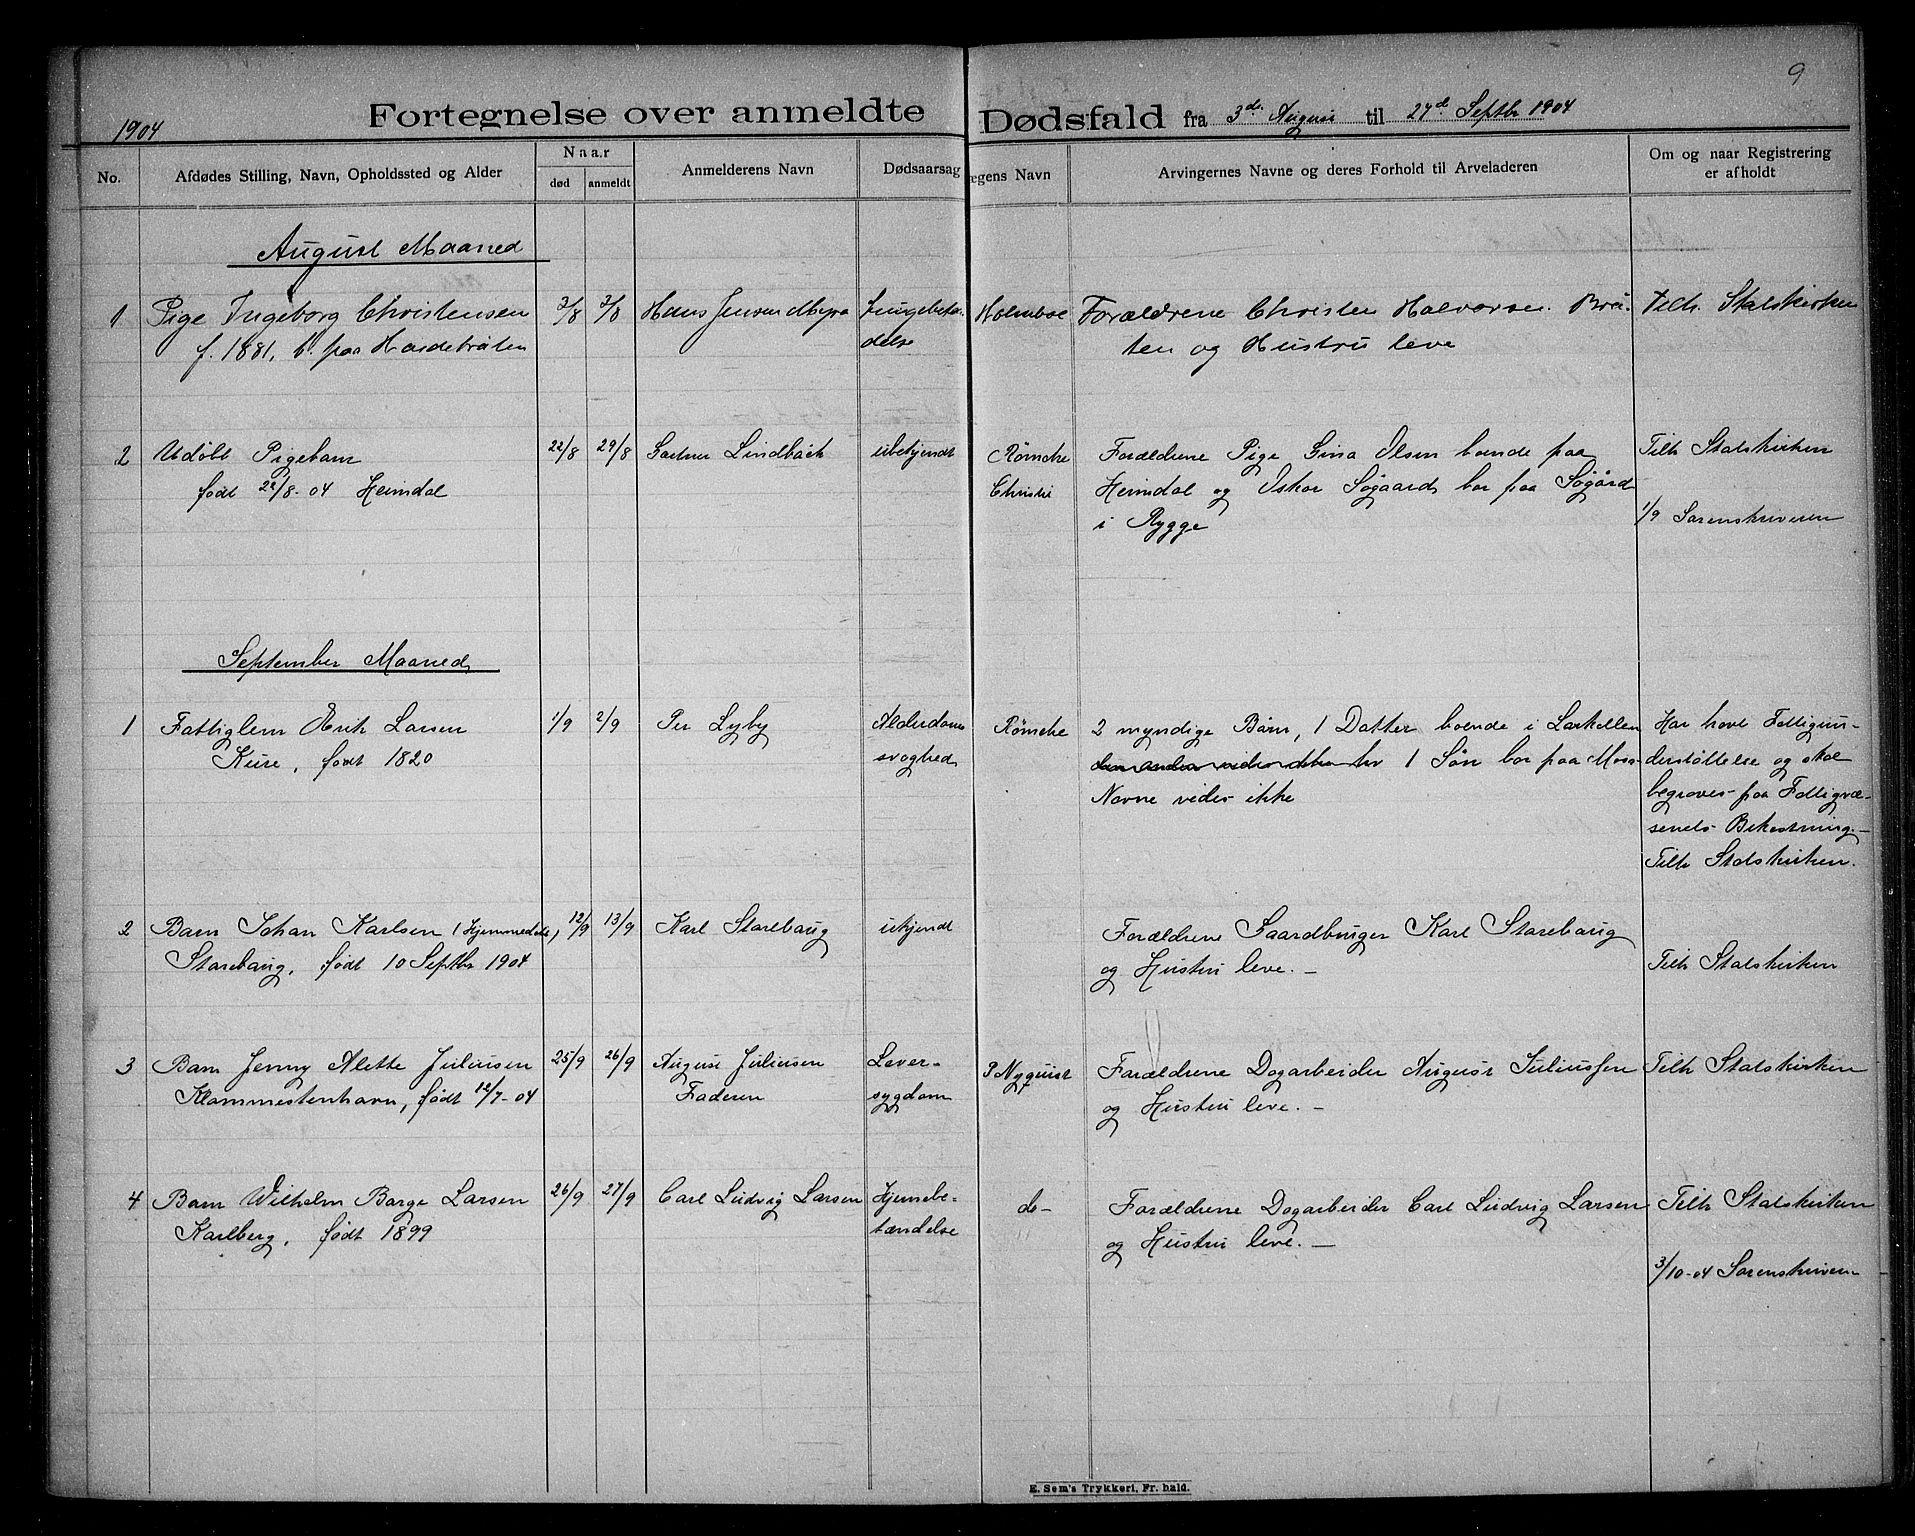 9
1904 Fortegnelse over anmeldte Dødsfald fra 3de August til 27de Septbr 1904
No. Afdødes Stilling, Navn, Opholdssted og Alder Naar død anmeldt Anmelderens Navn Dødsaarsag ægens Navn Arvingernes Navne og deres Forhold til Arveladeren Om og naar Registrering er afholdt
August Maaned
1 Pige Ingeborg Christensen 3/8 3/8 Hans Jensen Lungebetæn- Holmboe Forældrene Christen Halvorsen Brå- Tilh. Statskirken
f. 1881, b. paa Haidebråten delse ten og Hustru leve
2 Udöbt Pigebarn 22/8 29/8 Gartner Lindbäck ubekjendt Römcke Forældrene Pige Gina Olsen boende paa Tilh Statskirken
født 22/8-04 Heimdal Christi Heimdal og Oskar Søgaard bor paa Søgård
i Rygge 1/9 Sorenskriveren
September Maaned
1 Fattiglem Erik Larsen 1/9 2/9 Per Lyby Alderdoms Römcke 2 myndige Børn, 1 Datter boende i Larkollen Har havt Fattigun-
Kure, født 1820 svaghed 1 Søn bor paa Moss derstøttelse og skal
Navne vides ikke begraves paa Fattigvæ-
senets Bekostning.-
Tilh Statskirken.
2 Barn Johan Karlsen (Hjemmedøbt) 12/9 13/9 Karl Starebaug ukjendt Forældrene Gaardbruger Karl Starebaug
Starebaug, født 10 Septbr 1904 og Hustru leve.- Tilh Statskirken
3 Barn Jenny Alette Juliusen 25/9 26/9 August Juliusen Lever- P Nyquist Forældrene Dagarbeider August Juliussen Tilh Statskirken
Klommestenhavn, født 12/7-04 Faderen sygdom og Hustru leve.-
4 Barn Wilhelm Borge Larsen 26/9 27/9 Carl Ludvig Larsen Hjernebe- do- Forældrene Dagarbeider Carl Ludvig Larsen Tilh Statskirken
Karlberg, født 1899 tændelse og Hustru leve.-
3/10-04 Sorenskriveren
E. Sem's Trykkeri, Fr. hald.